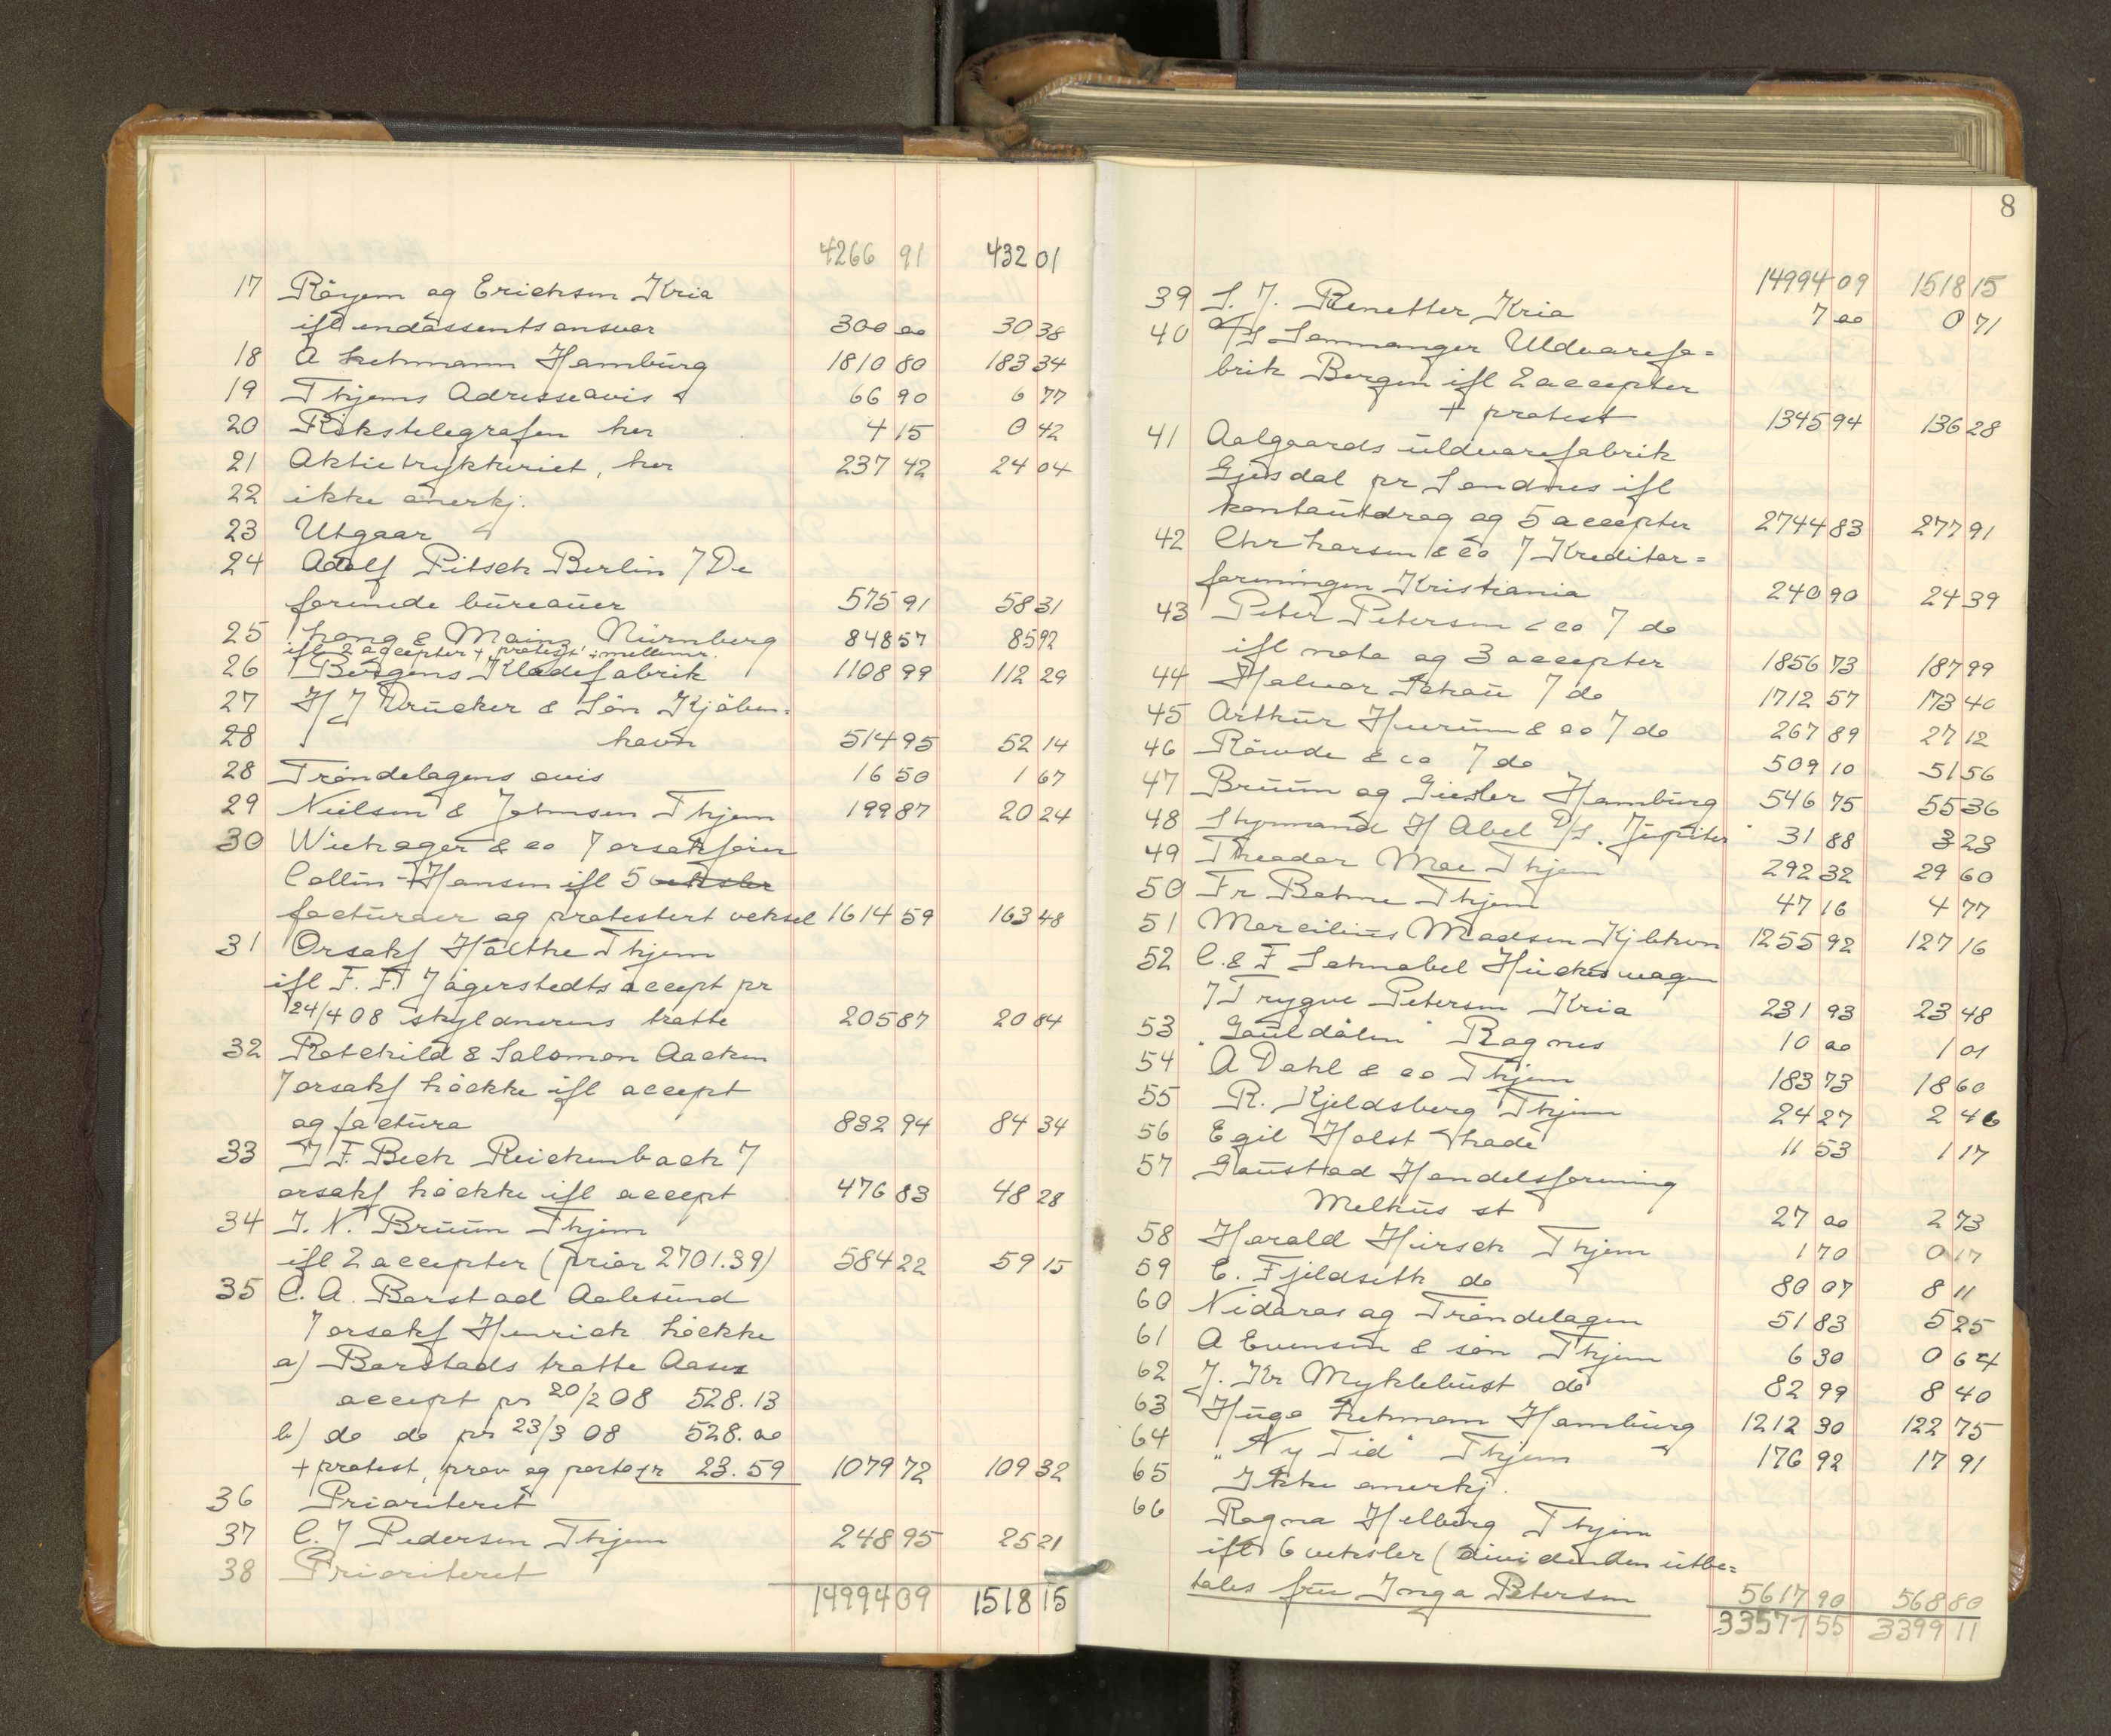 4266 91 432 01
17 Röyem og Erichsen Kria
ifl endossentsansvar 300 00 30 38
18 A Lehmann Hamburg 1810 80 183 34
19 Thjems Adresseavis 66 90 6 77
20 Rikstelegrafen her 4 15 0 42
21 Aktietrykkeriet, her 237 42 24 04
22 ikke anerkj.
23 Utgaar
24 Adolf Pitsch Berlin 7 De
forenede bureauer 575 91 58 31
25 Lang & Mainz Nürnberg 848 57 85 92
ifl 2 accepter + protest + mellemr.
26 Bergens Klædefabrik 1108 99 112 29
27 H J Drucker & Sön Kjöben=
28 havn 514 95 52 14
28 Tröndelagens avis 16 50 1 67
29 Nielsen & Johnsen Thjem 199 87 20 24
30 Wiehager & co 7 orsakförer
Collin-Hansen ifl 5 veksler
facturaer og protestert veksel 1614 59 163 48
31 Orsakf Holthe Thjem
ifl F. F. Jägerstedts accept pr
24/4 08 skyldnerens tratte 205 87 20 84
32 Rotchild & Salomon Aachen
7 orsakf Löchke ifl accept
og factura 832 94 84 34
33 J F. Beck Reichenbach 7
orsakf Löchke ifl accept 476 83 48 28
34 J. N. Bruun Thjem
ifl 2 accepter (prior 2701.39) 584 22 59 15
35 C. A. Barstad Aalesund
7 orsakf Henrich Löchke
a) Barstads tratte Aases
accept pr 20/2 08 528.13
b) do do pr 23/3 08 528.00
+ protest, prov og porto kr 23.59 1079 72 109 32
36 Prioriteret
37 C. J Pedersen Thjem 248 95 25 21
38 Prioriteret
14994 09 1518 15
8
14994 09 1518 15
39 S. J. Renetter Kria 7 00 0 71
40 A/S Sammanger Uldvarefa=
brik Bergen ifl 2 accepter
+ protest 1345 94 136 28
41 Aalgaards uldvarefabrik
Gjesdal pr Sandnes ifl
kontoutdrag og 5 accepter 2744 83 277 91
42 Chr Larsen & co 7 Kreditor=
foreningen Kristiania 240 90 24 39
43 Peter Petersen & co 7 do
ifl nota og 3 accepter 1856 73 187 99
44 Halvor Schou 7 do 1712 57 173 40
45 Arthur Hurum & co 7 do 267 89 27 12
46 Röwde & co 7 do 509 10 51 56
47 Bruun og Giesler Hamburg 546 75 55 36
48 Styrmand H Abel D/S. "Jupiter" 31 88 3 23
49 Theodor Moe Thjem 292 32 29 60
50 Fr Bohne Thjem 47 16 4 77
51 Marcilius Madsen Kjbhvn 1255 92 127 16
52 C. & F Schnabel Hückeswagen
7 Trygve Petersen Kria 231 93 23 48
53 "Gauldölen" Rognes 10 00 1 01
54 A Dahl & co Thjem 183 73 18 60
55 R. Kjeldsberg Thjem 24 27 2 46
56 Egil Holst Lhade 11 53 1 17
57 Gaustad Handelsforening
Melhus st 27 00 2 73
58 Harald Hirsch Thjem 1 70 0 17
59 E. Fjeldseth do 80 07 8 11
60 Nidaros og Tröndelagen 51 83 5 25
61 A Evensen & sön Thjem 6 30 0 64
62 J. Kr Myklebust do 82 99 8 40
63 Hugo Lehmann Hamburg 1212 30 122 75
64 "Ny Tid" Thjem 176 92 17 91
65 Ikke anerkj.
66 Ragna Helberg Thjem
ifl 6 veksler (dividenden utbe=
tales fru Inga Petersen 5617 90 568 80
33577 55 3399 11